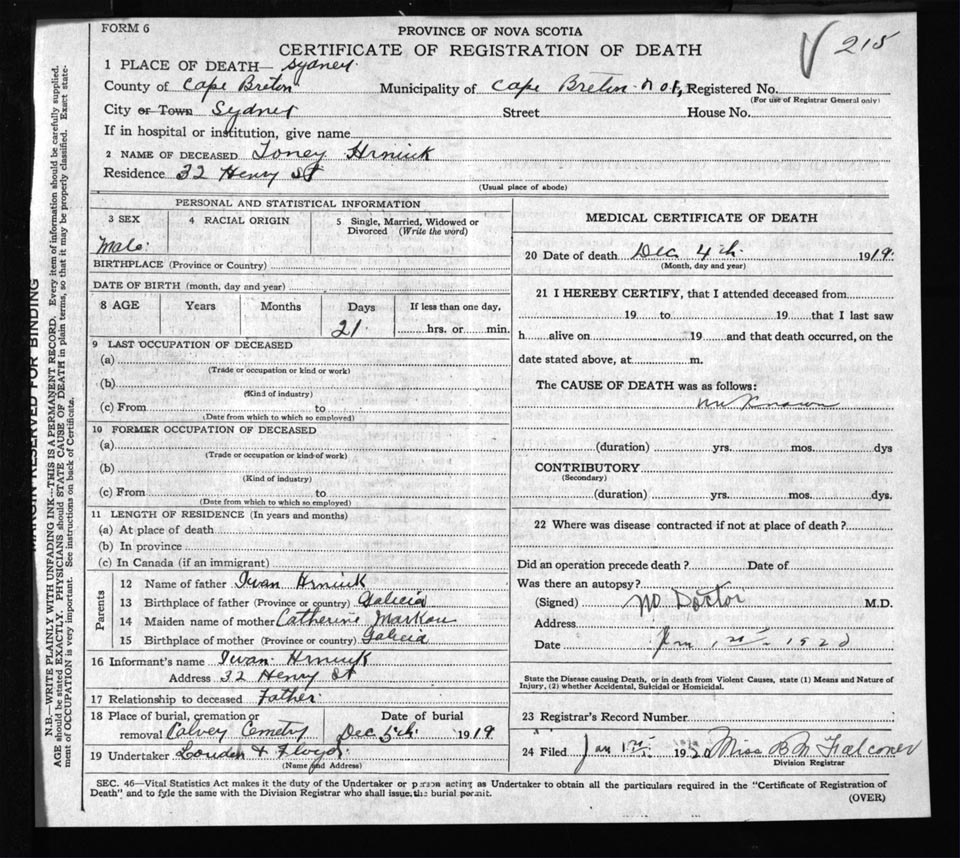 FORM 6
PROVINCE OF NOVA SCOTIA
CERTIFICATE OF REGISTRATION OF DEATH
215
1 PLACE OF DEATH— Sydney.
County of Cape Breton Municipality of Cape Breton Registered No.
(For use of Registrar General only)
City or Town Sydney Street House No.
If in hospital or institution, give name
2 NAME OF DECEASED Toney Hrniuk
Residence 32 Henry St
(Usual place of abode)
PERSONAL AND STATISTICAL INFORMATION
3 SEX 4 RACIAL ORIGIN 5 Single, Married, Widowed or Divorced (Write the word)
Male.
BIRTHPLACE (Province or Country)
DATE OF BIRTH (month, day and year)
8 AGE Years Months Days If less than one day,
21 hrs. or min.
9 LAST OCCUPATION OF DECEASED
(a)
(Trade or occupation or kind or work)
(b)
(Kind of industry)
(c) From to
(Date from which to which so employed)
10 FORMER OCCUPATION OF DECEASED
(a)
(Trade or occupation or kind of work)
(b)
(Kind of industry)
(c) From to
(Date from which to which so employed)
11 LENGTH OF RESIDENCE (In years and months)
(a) At place of death
(b) In province
(c) In Canada (if an immigrant)
Parents
12 Name of father Iwan Hrniuk
13 Birthplace of father (Province or country) Galicia
14 Maiden name of mother Catherine Markou
15 Birthplace of mother (Province or country) Galicia
16 Informant's name Iwan Hrniuk
Address 32 Henry St
17 Relationship to deceased Father
18 Place of burial, cremation or Date of burial
removal Calvey Cemetry Dec 5th 1919
19 Undertaker Louden & Floyd.
(Name and Address)
MEDICAL CERTIFICATE OF DEATH
20 Date of death Dec 4th 1919.
(Month, day and year)
21 I HEREBY CERTIFY, that I attended deceased from
19 to 19 that I last saw
h alive on 19 and that death occurred, on the
date stated above, at m.
The CAUSE OF DEATH was as follows:
unknown
(duration) yrs. mos. dys
CONTRIBUTORY
(Secondary)
(duration) yrs. mos. dys.
22 Where was disease contracted if not at place of death?
Did an operation precede death? Date of
Was there an autopsy?
(Signed) no Doctor M.D.
Address
Date Jan 1st 1920
State the Disease causing Death, or in death from Violent Causes, state (1) Means and Nature of
Injury, (2) whether Accidental, Suicidal or Homicidal.
23 Registrar's Record Number
24 Filed Jan 1st 1920 Miss B M Falconer
Division Registrar
SEC. 46—Vital Statistics Act makes it the duty of the Undertaker or person acting as Undertaker to obtain all the particulars required in the "Certificate of Registration of
Death" and to fyle the same with the Division Registrar who shall issue the burial permit.
(OVER)
MARGIN RESERVED FOR BINDING
N.B.—WRITE PLAINLY WITH UNFADING INK—THIS IS A PERMANENT RECORD. Every item of information should be carefully supplied.
AGE should be stated EXACTLY. PHYSICIANS should STATE CAUSE OF DEATH in plain terms, so that it may be properly classified. Exact state-
ment of OCCUPATION is very important. See instructions on back of Certificate.